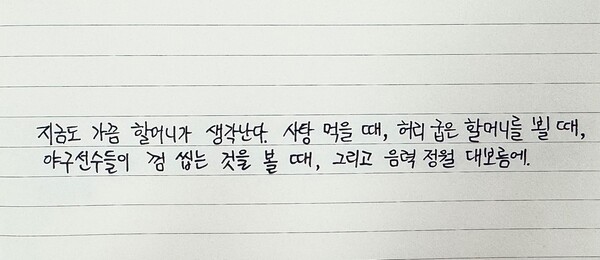 지금도 가끔 할머니가 생각난다. 사탕 먹을 때, 허리 굽은 할머니를 뵐 때,
야구선수들이 껌 씹는 것을 볼 때, 그리고 음력 정월 대보름에.